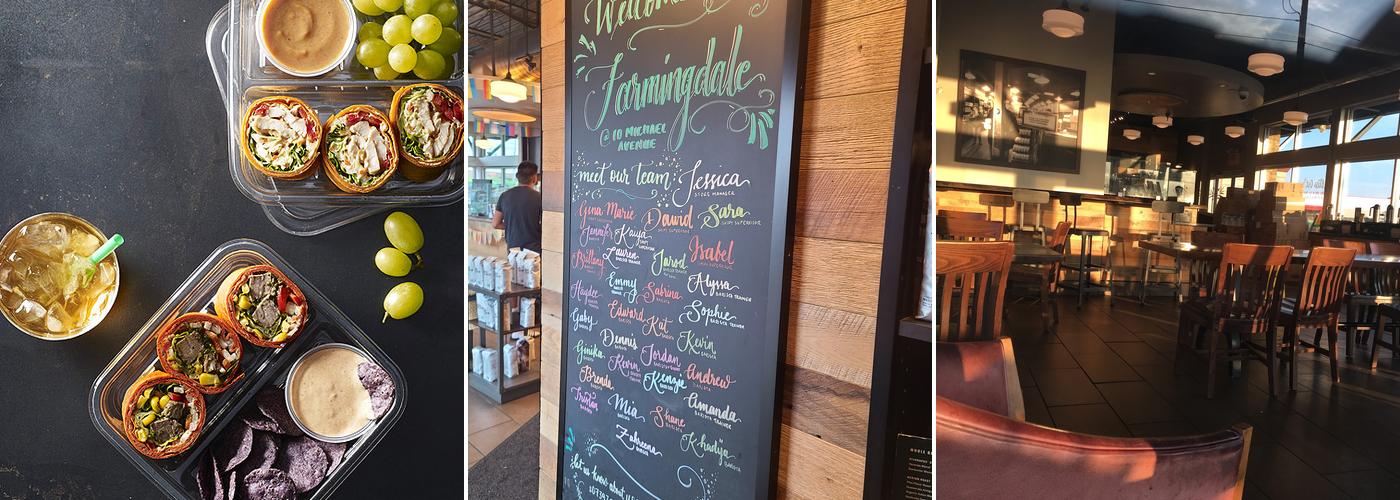 Welcome
Farmingdale
@ 10 MICHAEL
AVENUE
meet our team:
Jessica
STORE MANAGER
Gina Marie David Sara
SHIFT SUPERVISOR
Jennifer Kaiya
Isabel
Brittany Lauren Jarod
Emmy Sabrina Alyssa
BARISTA TRAINER
Haydee Edward Sophie
BARISTA TRAINER
Gaby Kat Kevin
Dennis
Ginika Kevin Jordan
Brenda Kenzie Andrew
BARISTA
Tristan Mia Shane Amanda
BARISTA TRAINER
Zahreena Khadija
BARISTA
let us know about u